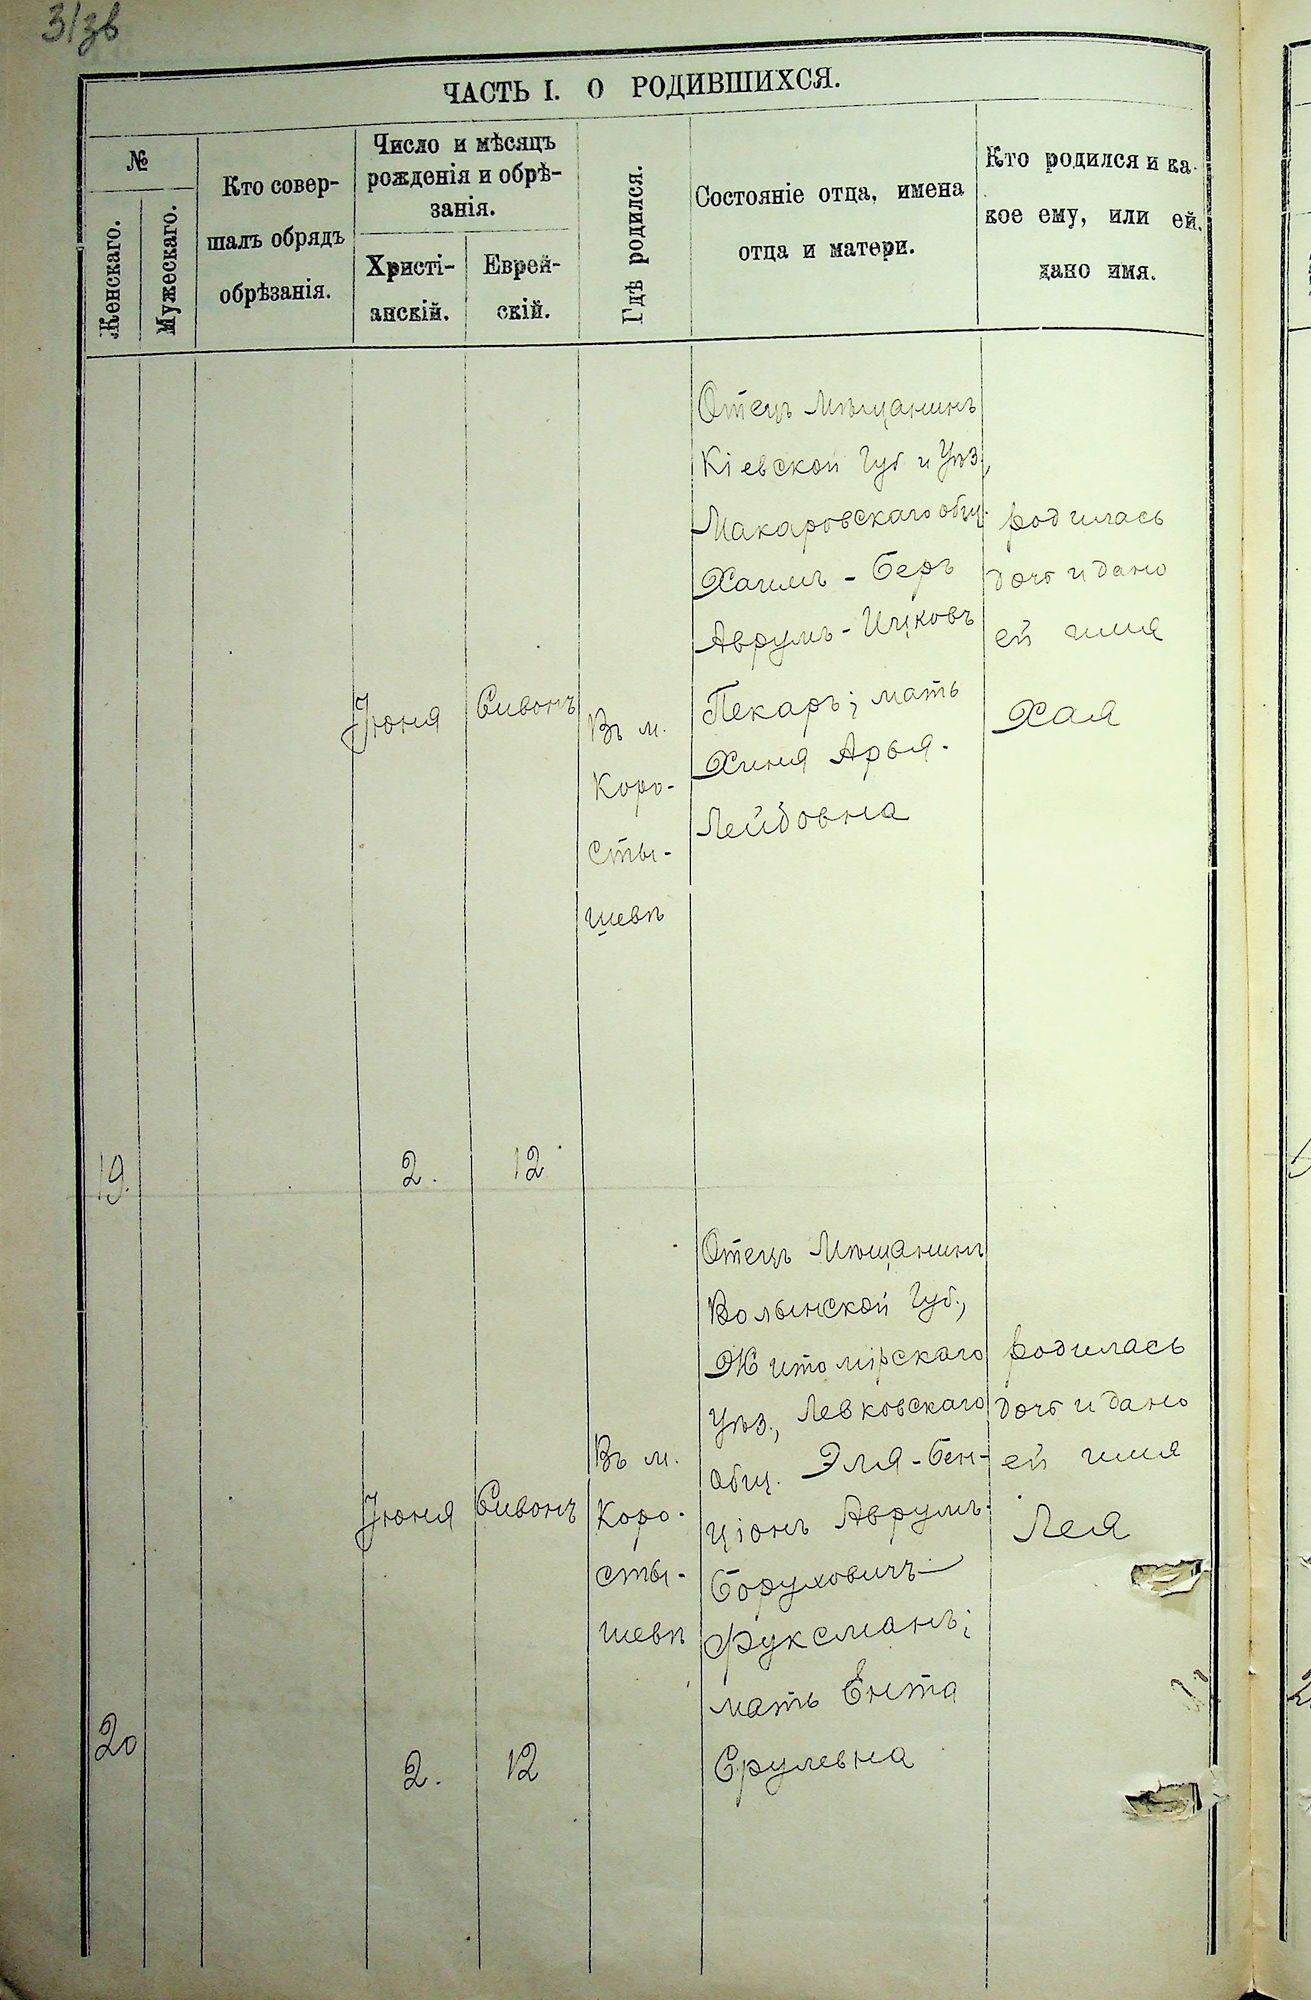 31зв
ЧАСТЬ I. О РОДИВШИХСЯ.
№
Женскаго.
Мужескаго.
Кто совер-
шалъ обрядъ
обрѣзанія.
Число и мѣсяцъ
рожденія и обрѣ-
занія.
Христі-
анскій.
Еврей-
скій.
Гдѣ родился.
Состояніе отца, имена
отца и матери.
Кто родился и ка-
кое ему, или ей,
дано имя.
19.
Июня
2.
Сивонъ
12
Въ м.
Коро-
сты-
шевѣ
Отецъ Мѣщанинъ
Кіевской Губ и Уѣз,
Макаровскаго общ.
Хаимъ-Беръ
Аврумъ-Ицковъ
Пекаръ; мать
Хиня Арья-
Лейбовна
родилась
дочь и дано
ей имя
Хая
20
Июня
2.
Сивонъ
12
Въ м.
Коро-
сты-
шевѣ
Отецъ Мѣщанинъ
Волынской Губ.,
Житомірскаго
Уѣз., Левковскаго
общ. Эля-Бен-
ціонъ Аврумъ-
Боруховичъ
Фуксманъ;
мать Ента
Срулевна
родилась
дочь и дано
ей имя
Лея